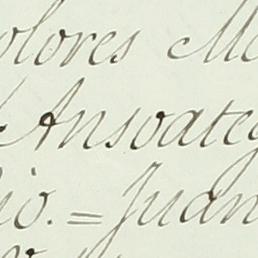 olores Me
Ansoateg
io. = Juan